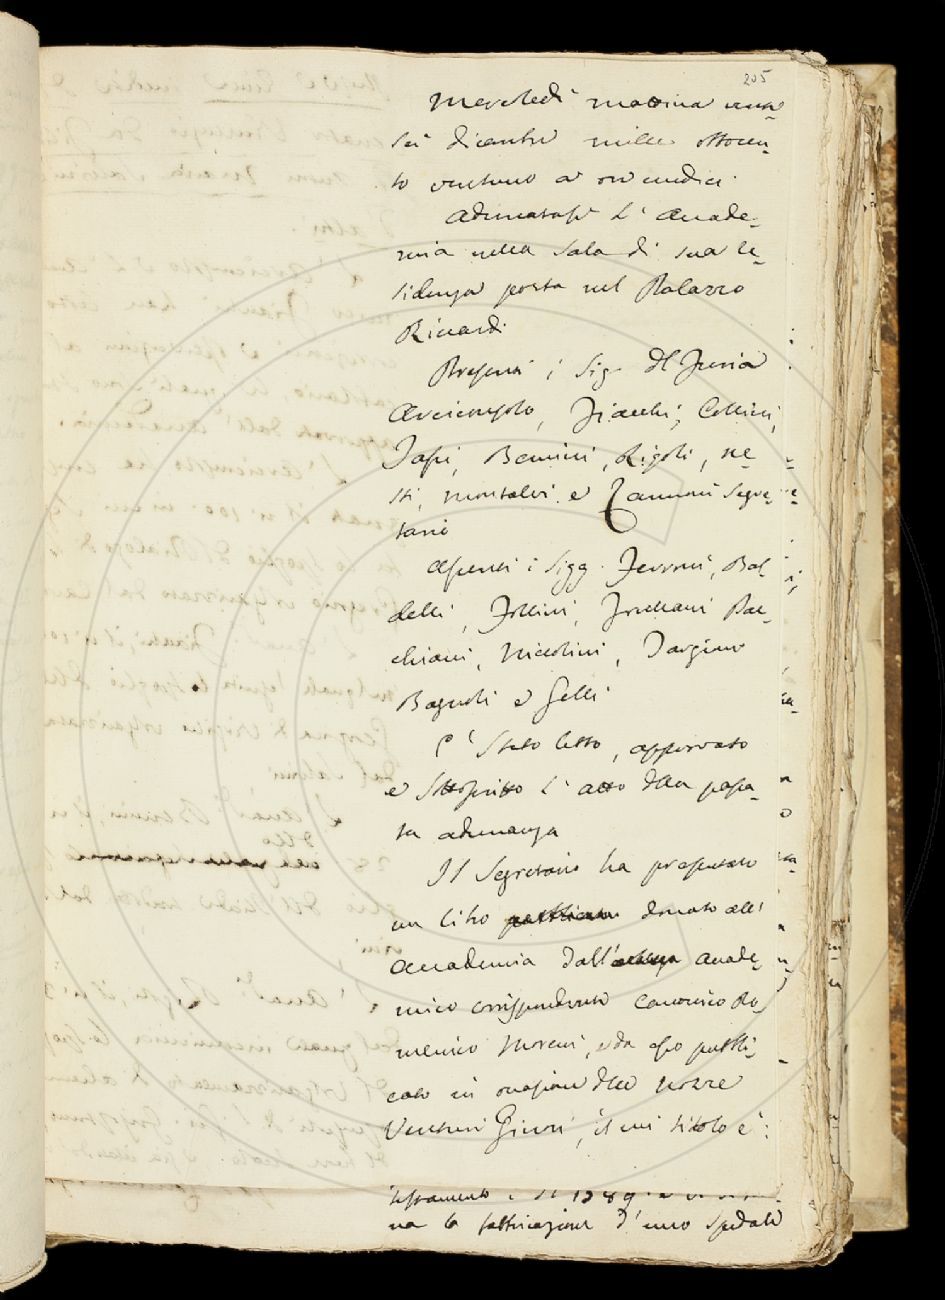 205
Mercoledì mattina venti
sei dicembre mille ottocen-
to ventuno a ore undici.
Adunatasi l'Accade-
mia nella Sala di sua re-
sidenza posta nel Palazzo
Riccardi.
Presenti i Sig. Del Furia
Arciconsolo, Fiacchi, Collini,
Sarchiani, Bencini, Rigoli, Ne-
sti, Montalvi, e Zannoni Segre-
tario
Assenti i Sigg. Ferroni, Bal-
delli, Follini, Frullani Pac-
chiani, Niccolini, Targioni
Bagnoli e Gelli
È stato letto, approvato
e sottoscritto l'atto della passa-
ta adunanza
Il Segretario ha presentato
un libro donato all'
Accademia dall' Accade-
mico corrispondente Canonico Do-
menico Moreni, e da esso pubbli-
cato in occasione delle nozze
Venturi Ginori, il cui titolo è:
testamento 1389
na la fabbricazione d'uno spedale